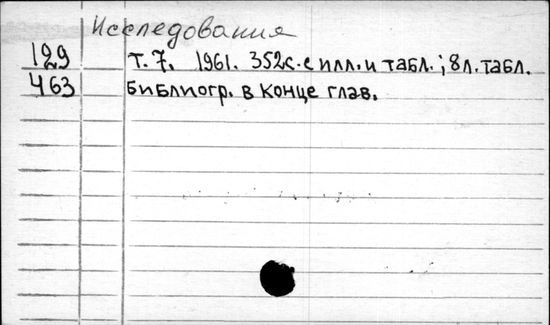 Исследования
129 т. 7. 1961. 352с. с илл. и табл.; 8 л. табл.
463 Библиогр. в конце глав.